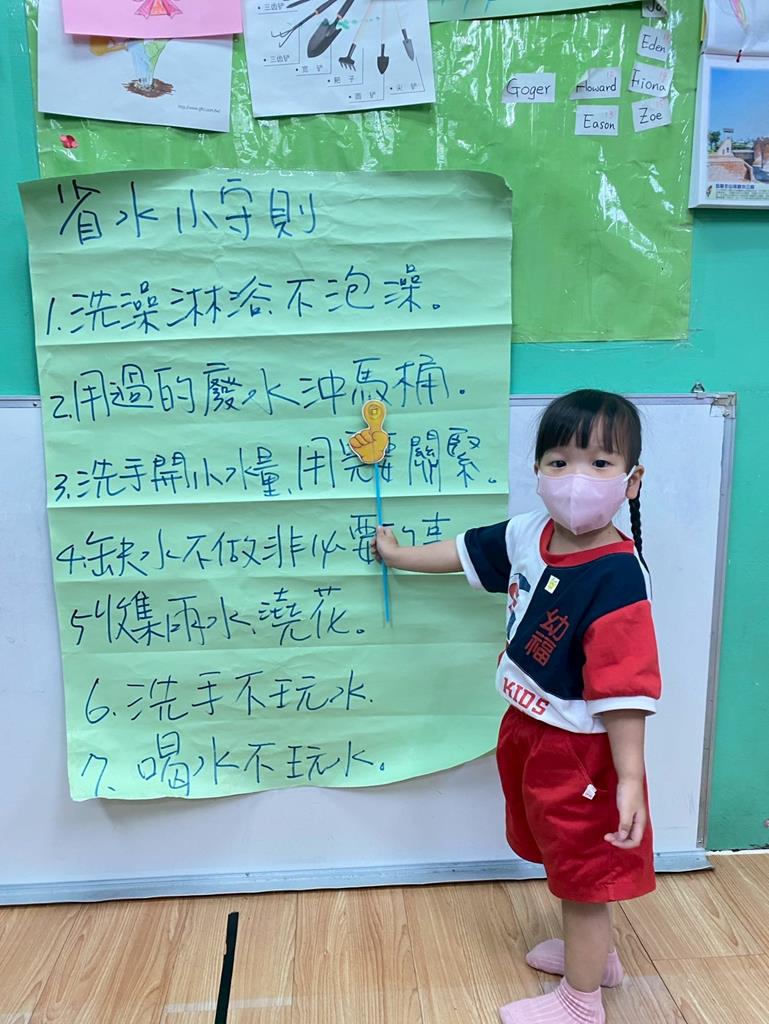 三齿铲
三齿铲
宽铲
耙子
尖铲
面铲
Eden
Goger
Howard
Fiona
Eason
Zoe
省水小守則
1.洗澡淋浴.不泡澡。
2.用過的廢水沖馬桶。
3.洗手開小水量.用完要關緊。
4.缺水不做非必要的事
5.收集雨水.澆花。
6.洗手不玩水.
7.喝水不玩水。
幼福
KIDS